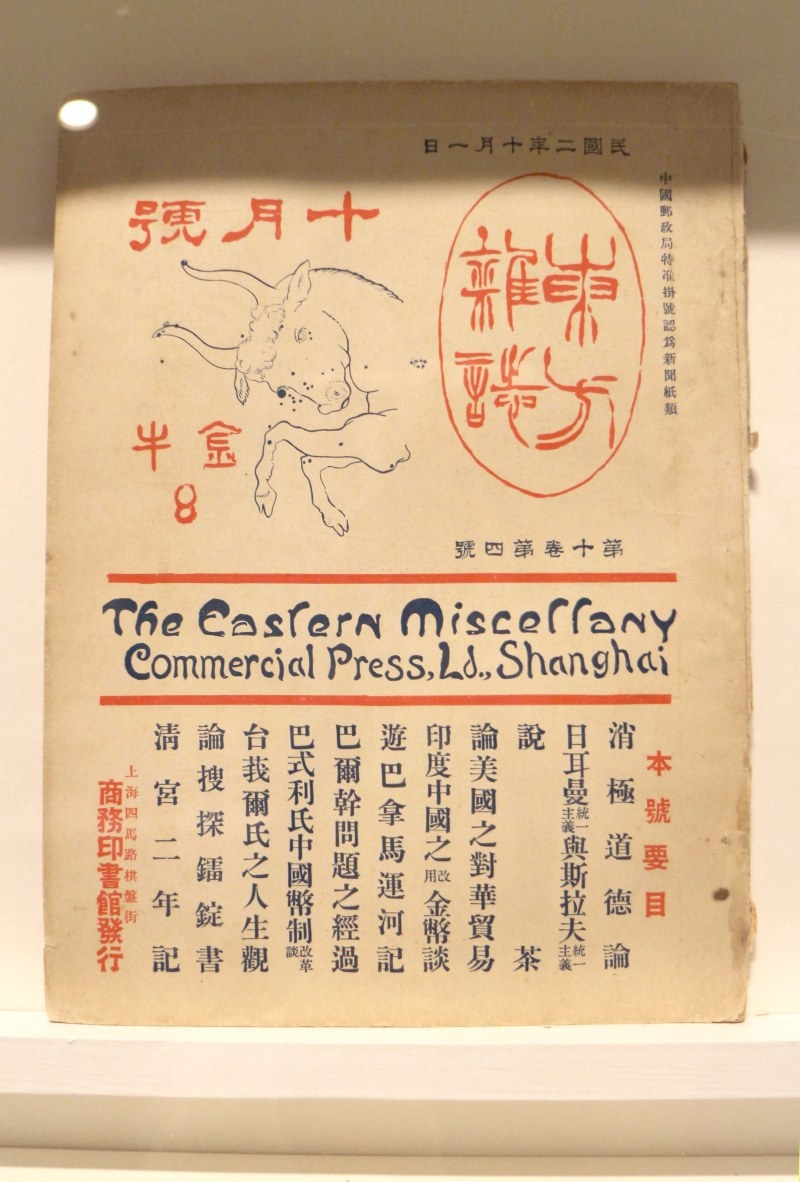 民國二年十月一日
中國郵政局特准掛號認爲新聞紙類
東方
雜誌
十月號
金牛
8
第十卷第四號
The Eastern Miscellany
Commercial Press, Ld., Shanghai
本號要目
消極道德論
日耳曼統一主義與斯拉夫統一主義
說茶
論美國之對華貿易
印度中國之改用金幣談
遊巴拿馬運河記
巴爾幹問題之經過
巴式利氏中國幣制改革談
台莪爾氏之人生觀
論搜探鐳錠書
清宮二年記
上海四馬路棋盤街
商務印書館發行